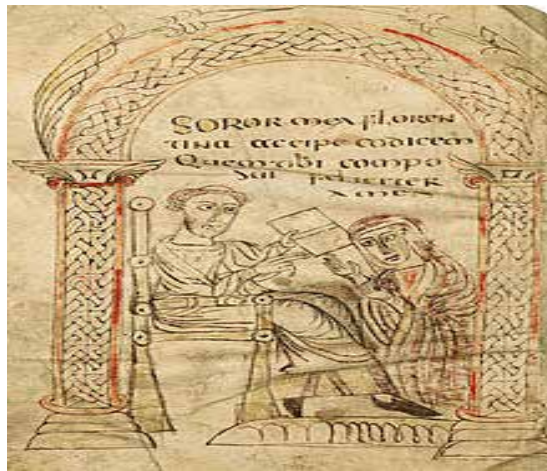 SOROR mea FLOREN
tina accipe codicem
Quem tibi compo
sui feliciter
amen